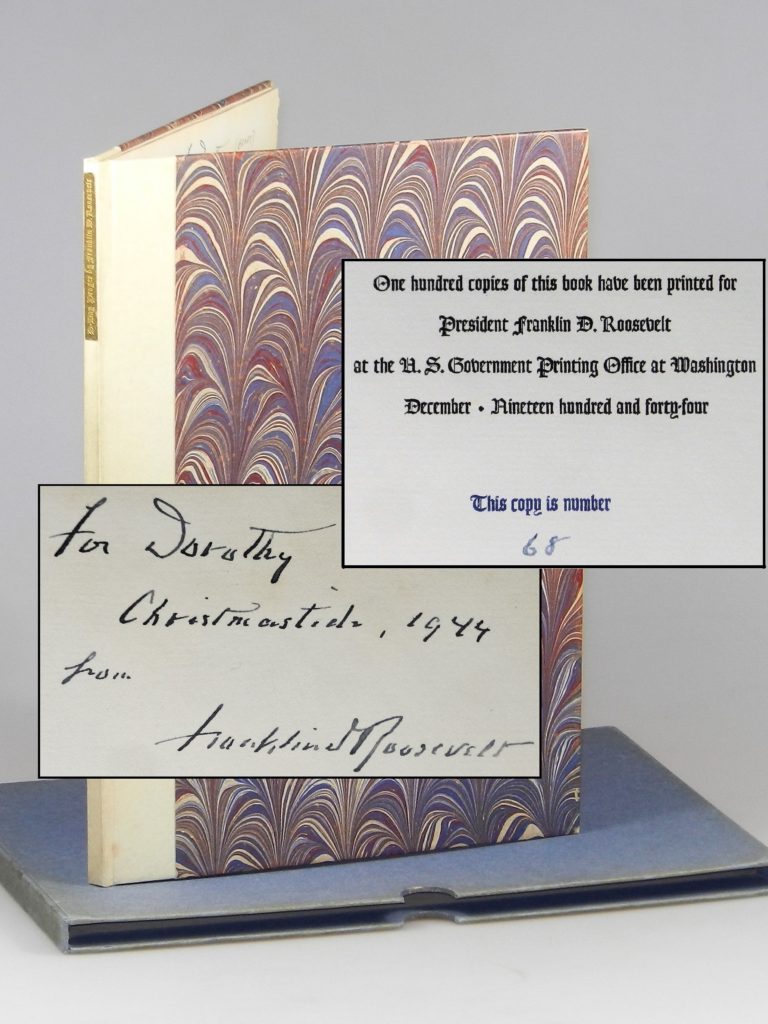 D-Day Prayer by Franklin D. Roosevelt
One hundred copies of this book have been printed for
President Franklin D. Roosevelt
at the U. S. Government Printing Office at Washington
December • Nineteen hundred and forty-four
This copy is number
68
For Dorothy
Christmastide, 1944
from
Franklin D Roosevelt